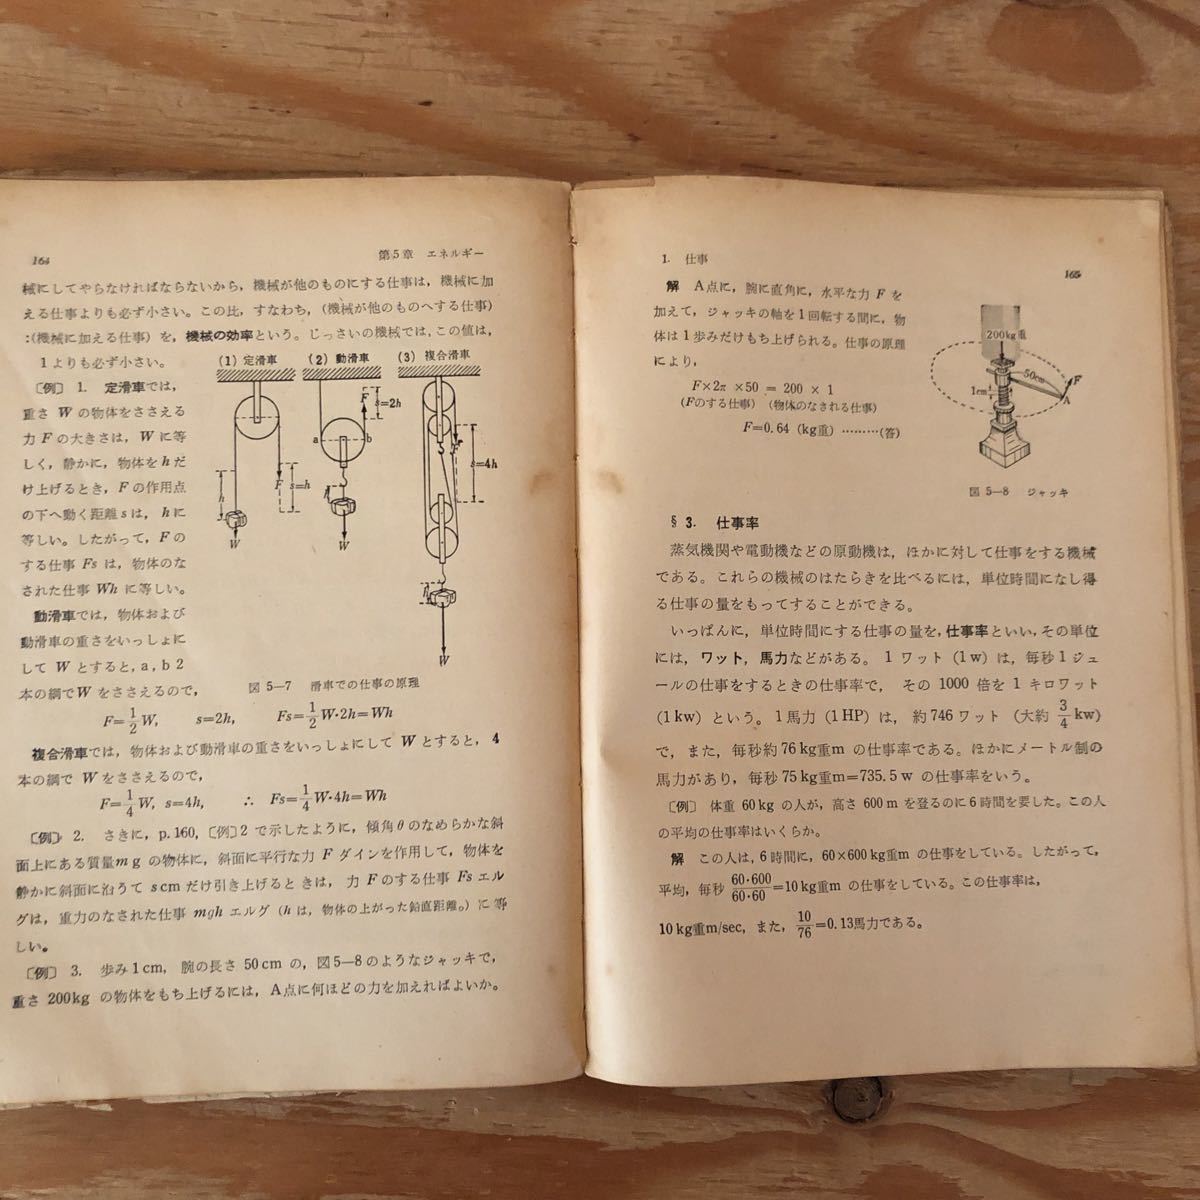 164 第5章 エネルギー
械にしてやらなければならないから，機械が他のものにする仕事は，機械に加
える仕事よりも必ず小さい。この比，すなわち，(機械が他のものへする仕事)
:(機械に加える仕事) を，機械の効率という。じっさいの機械では，この値は，
1よりも必ず小さい。
〔例〕 1. 定滑車では，
重さ W の物体をささえる
力 F の大きさは，W に等
しく，静かに，物体を h だ
け上げるとき，F の作用点
の下へ動く距離 s は，h に
等しい。したがって，F の
する仕事 Fs は，物体のな
された仕事 Wh に等しい。
動滑車では，物体および
動滑車の重さをいっしょに
して W とすると，a，b 2
本の綱で W をささえるので，
(1) 定滑車 (2) 動滑車 (3) 複合滑車
F s=2h
a b
h F s=h
s=4h
W W
W
図 5—7 滑車での仕事の原理
F=1/2 W, s=2h, Fs=1/2 W·2h=Wh
複合滑車では，物体および動滑車の重さをいっしょにして W とすると，4
本の綱で W をささえるので，
F=1/4 W, s=4h, ∴ Fs=1/4 W·4h=Wh
〔例〕 2. さきに，p.160，〔例〕2 で示したように，傾角 θ のなめらかな斜
面上にある質量 m g の物体に，斜面に平行な力 F ダインを作用して，物体を
静かに斜面に沿うて s cm だけ引き上げるときは，力 F のする仕事 Fs エル
グは，重力のなされた仕事 mgh エルグ (h は，物体の上がった鉛直距離。) に等
しい。
〔例〕 3. 歩み 1 cm，腕の長さ 50 cm の，図5—8のようなジャッキで，
重さ 200 kg の物体をもち上げるには，A点に何ほどの力を加えればよいか。
1. 仕事 165
解 A点に，腕に直角に，水平な力 F を
加えて，ジャッキの軸を1回転する間に，物
体は1歩みだけもち上げられる。仕事の原理
により，
F×2π×50 = 200×1
(Fのする仕事) (物体のなされる仕事)
F=0.64 (kg重) ………(答)
200kg重
50cm F
1cm
A
図 5—8 ジャッキ
§ 3. 仕事率
蒸気機関や電動機などの原動機は，ほかに対して仕事をする機械
である。これらの機械のはたらきを比べるには，単位時間になし得
る仕事の量をもってすることができる。
いっぱんに，単位時間にする仕事の量を，仕事率といい，その単位
には，ワット，馬力などがある。1 ワット (1w) は，毎秒1ジュ
ールの仕事をするときの仕事率で，その 1000 倍を 1 キロワット
(1 kw) という。1馬力 (1 HP) は，約746 ワット (大約 3/4 kw)
で，また，毎秒約 76 kg重m の仕事率である。ほかにメートル制の
馬力があり，毎秒 75 kg重m=735.5 w の仕事率をいう。
〔例〕 体重 60 kg の人が，高さ 600 m を登るのに 6 時間を要した。この人
の平均の仕事率はいくらか。
解 この人は，6 時間に，60×600 kg重m の仕事をしている。したがって，
平均，毎秒 60·600/60·60 =10 kg重m の仕事をしている。この仕事率は，
10 kg重m/sec，また，10/76=0.13馬力である。